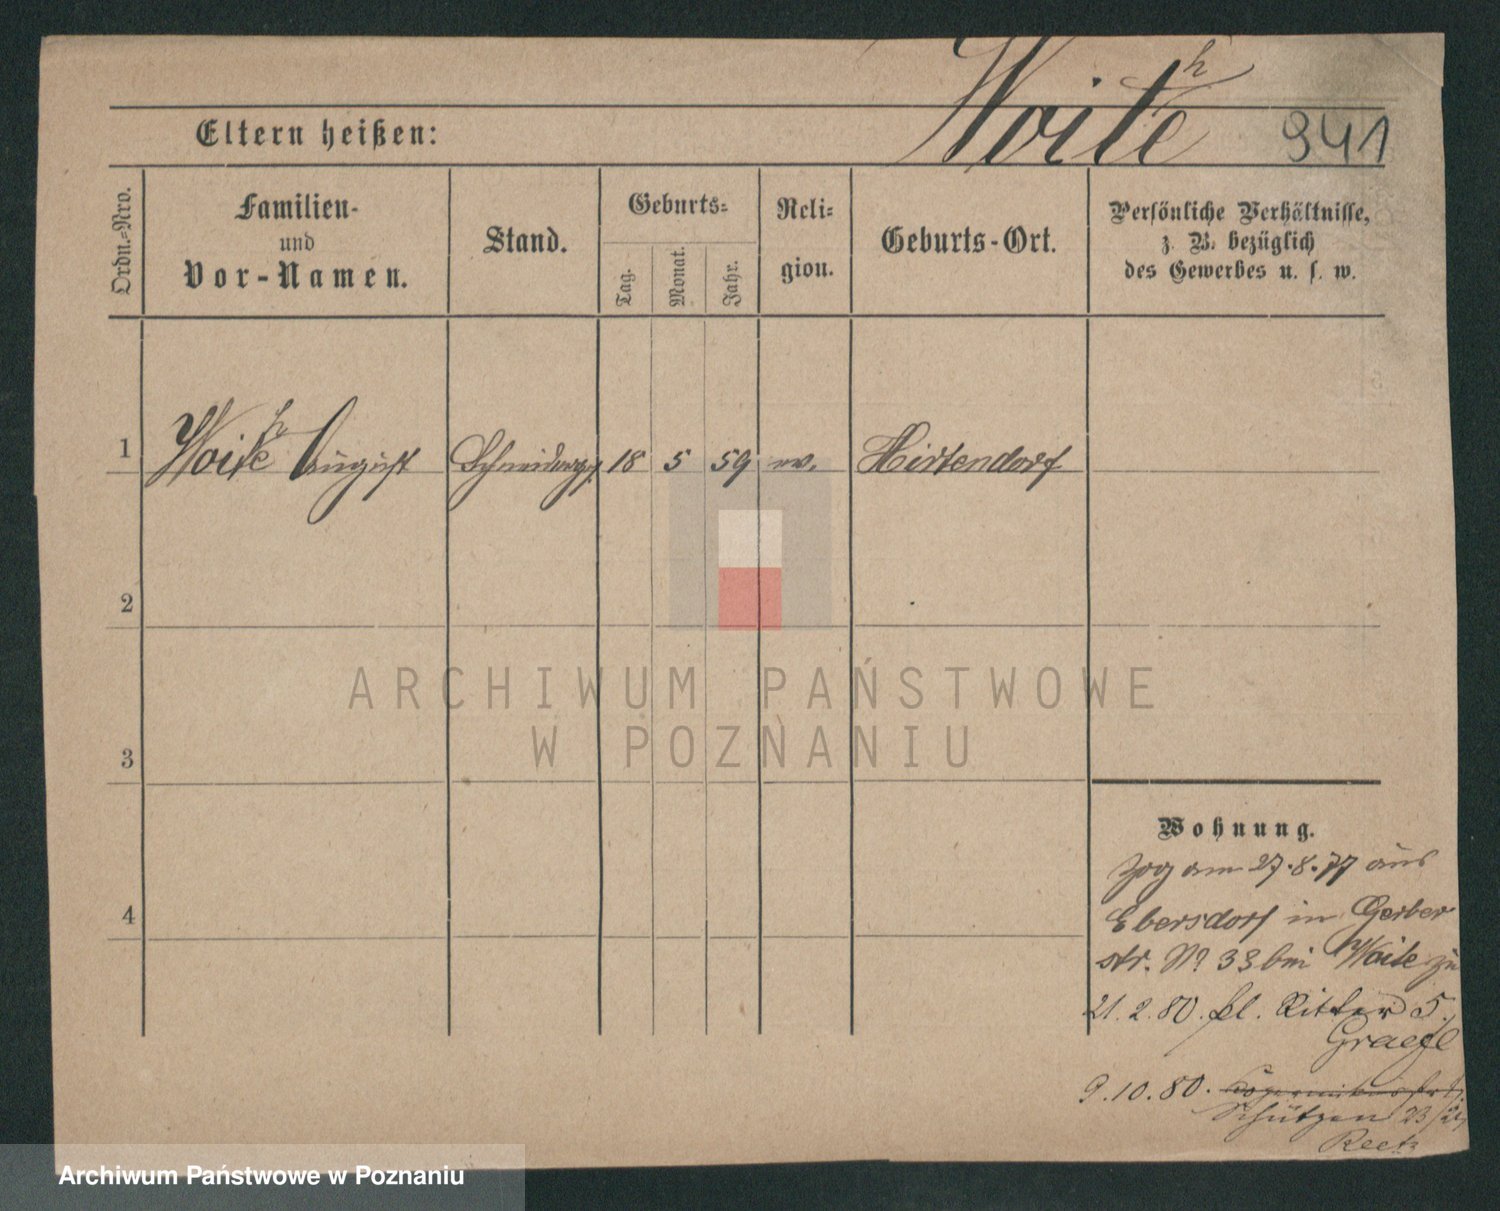 Woithe
941
Eltern heißen:
Ordn.-Nro.
Familien-
und
Vor-Namen.
Stand.
Geburts-
Tag.
Monat.
Jahr.
Reli-
gion.
Geburts-Ort.
Persönliche Verhältnisse,
z. B. bezüglich
des Gewerbes u. s. w.
1 Woithe August Schneiderges. 18 5 59 ev. Hirtendorf
2
3
4
ARCHIWUM PAŃSTWOWE
W POZNANIU
Wohnung.
zog am 27.8.77 aus
Ebersdorf in Gerber
str. No 33 bei Woite zu
21.2.80. kl. Ritter 5.
Graefe
9.10.80.
Schützen 23/24
Reetz
Archiwum Państwowe w Poznaniu